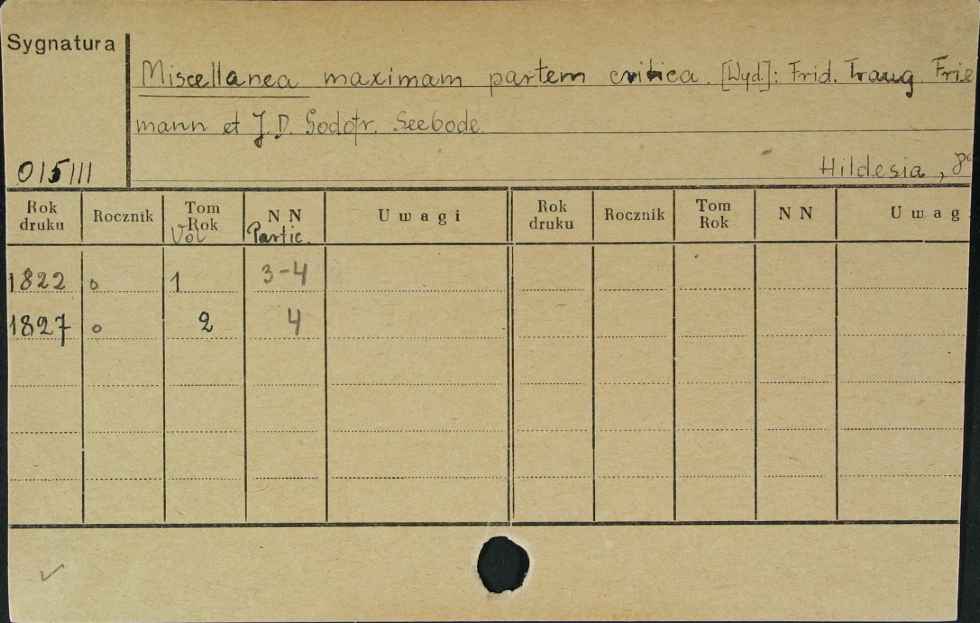 Sygnatura
Miscellanea maximam partem critica. [Wyd.]: Frid. Traug. Frie
mann et J.D. Godofr. Seebode.
015III
Hildesia, 8°
Rok druku Rocznik Tom Rok Vol N N Partic. Uwagi Rok druku Rocznik Tom Rok N N Uwag
1822 o 1 3-4
1827 o 2 4